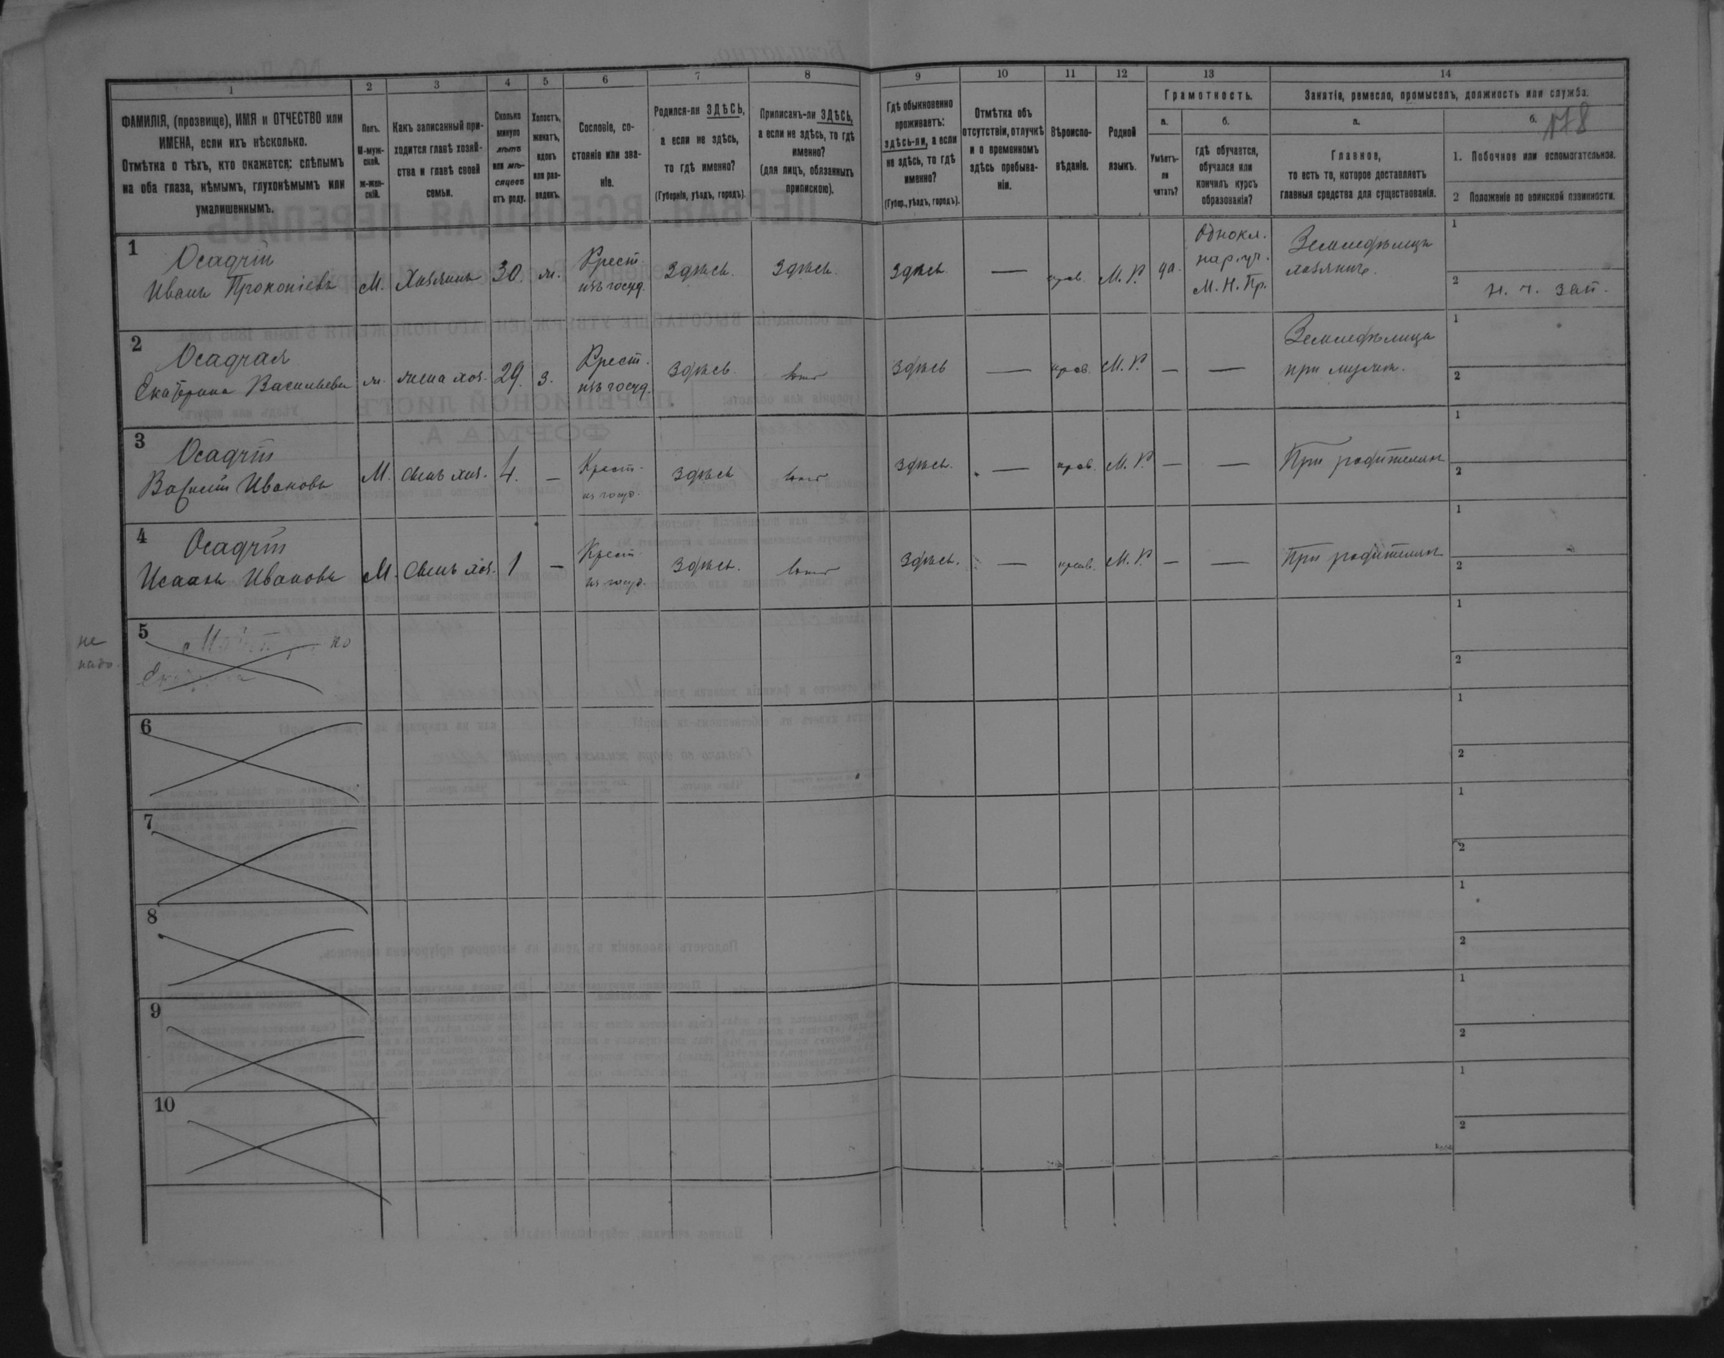 1 2 3 4 5 6 7 8 9 10 11 12 13 14
ФАМИЛІЯ, (прозвище), ИМЯ и ОТЧЕСТВО или
ИМЕНА, если ихъ нѣсколько.
Отмѣтка о тѣхъ, кто окажется: слѣпымъ
на оба глаза, нѣмымъ, глухонѣмымъ или
умалишеннымъ.
Полъ.
М-муж-
ской.
Ж-жен-
скій.
Какъ записанный при-
ходится главѣ хозяй-
ства и главѣ своей
семьи.
Сколько
минуло
лѣтъ
или мѣ-
сяцевъ
отъ роду.
Холостъ,
женатъ,
вдовъ
или раз-
веденъ.
Сословіе, со-
стояніе или зва-
ніе.
Родился-ли ЗДѢСЬ,
а если не здѣсь,
то гдѣ именно?
(Губернія, уѣздъ, городъ).
Приписанъ-ли ЗДѢСЬ,
а если не здѣсь, то гдѣ
именно?
(для лицъ, обязанныхъ
припискою).
Гдѣ обыкновенно
проживаетъ:
здѣсь-ли, а если
не здѣсь, то гдѣ
именно?
(Губер., уѣздъ, городъ).
Отмѣтка объ
отсутствіи, отлучкѣ
и о временномъ
здѣсь пребыва-
ніи.
Вѣроиспо-
вѣданіе.
Родной
языкъ.
Грамотность.
а.
Умѣетъ-
ли
читать?
б.
Гдѣ обучается,
обучался или
кончилъ курсъ
образованія?
Занятія, ремесло, промыселъ, должность или служба.
а.
Главное,
то есть то, которое доставляетъ
главныя средства для существованія.
б.
178
1. Побочное или вспомогательное.
2 Положеніе по воинской повинности.
1
Осадчій
Иванъ Прокопіевъ
М. Хозяинъ 30. ж.
Крест
изъ госуд.
Здѣсь. Здѣсь. Здѣсь — прав. М. Р. да.
Однокл.
нар. уч.
М. Н. Пр.
Земледѣлецъ
хозяинъ.
1
2 Н. ч. зап.
2
Осадчая
Екатерина Васильева
ж. жена хоз. 29. з.
Крест.
изъ госуд.
Здѣсь тоже Здѣсь — прав. М. Р. — —
Земледѣлица
при мужѣ.
1
2
3
Осадчій
Василій Ивановъ
М. сынъ хоз. 4. —
Крест.
из госуд.
Здѣсь тоже Здѣсь. — прав. М. Р. — —
При родителяхъ
1
2
4
Осадчій
Исаакъ Ивановъ
М. сынъ хоз. 1 —
Крест
из госуд.
Здѣсь. тоже Здѣсь. — прав. М. Р. — —
При родителяхъ
1
2
не
надо.
5
1
2
6
1
2
7
1
2
8
1
2
9
1
2
10
1
2